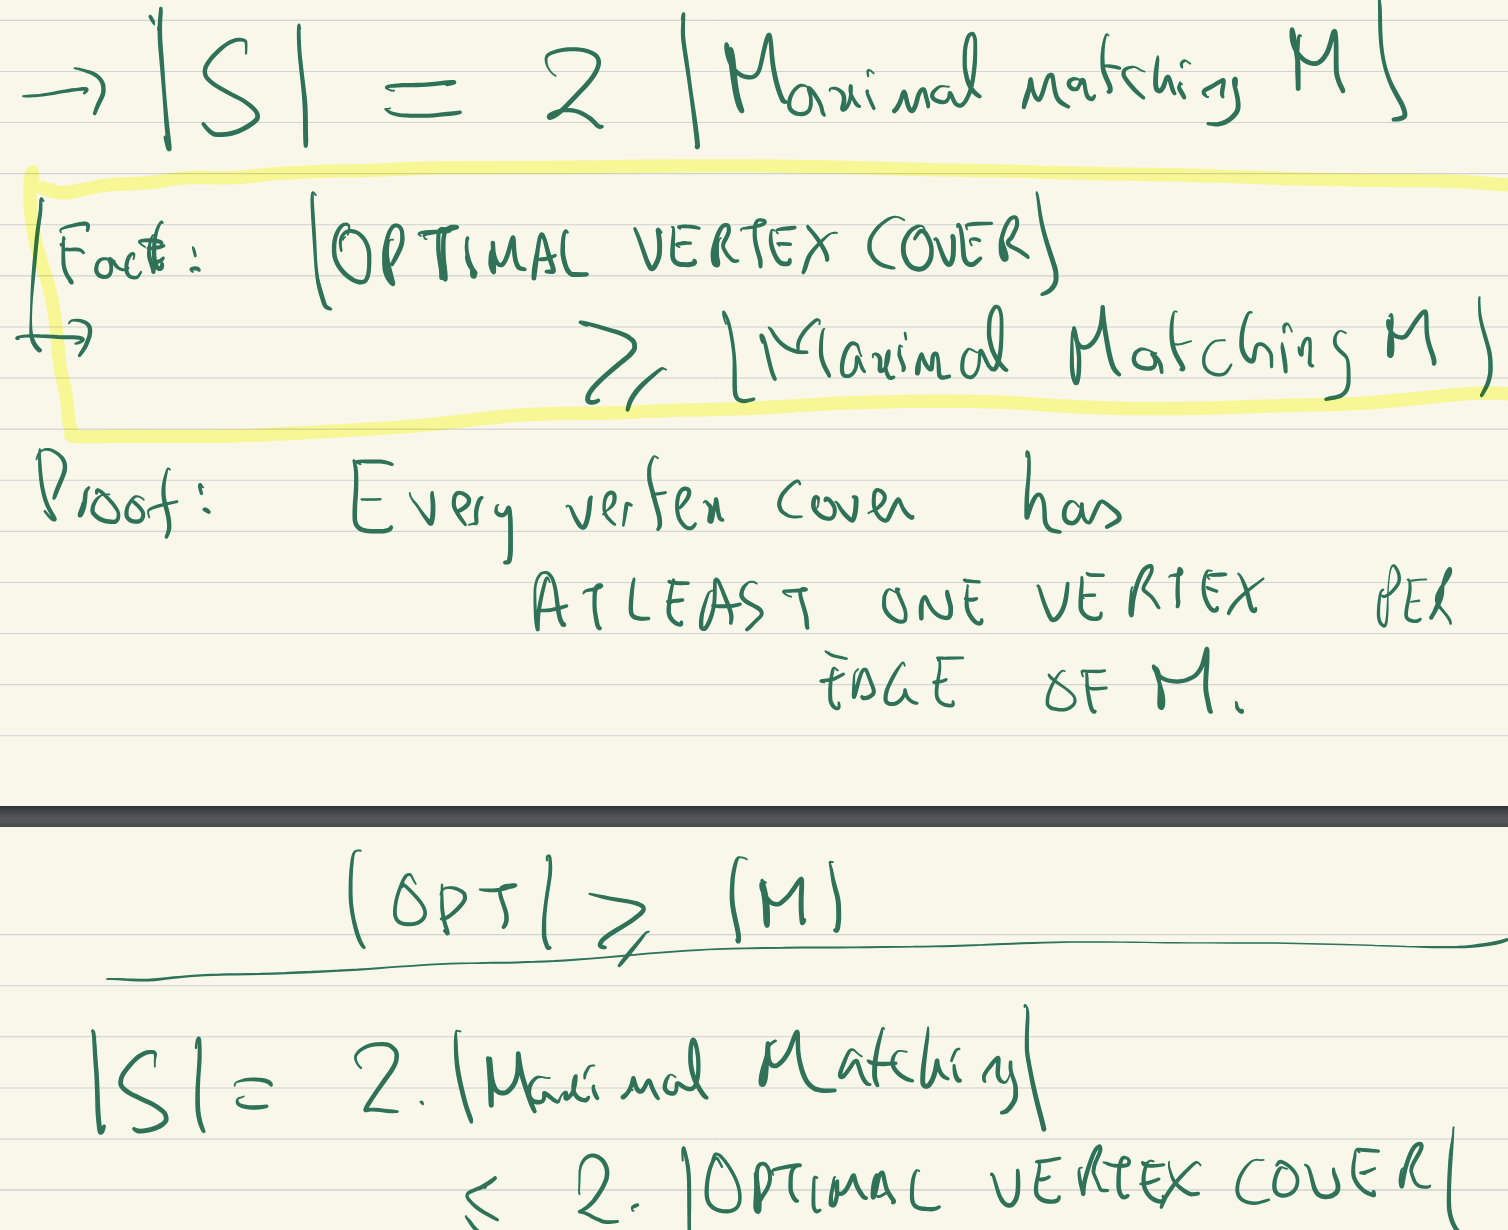 → |S| = 2 |Maximal matching M|
Fact: |OPTIMAL VERTEX COVER|
→ ≥ |Maximal Matching M|
Proof: Every vertex cover has
ATLEAST ONE VERTEX PER
EDGE OF M.
|OPT| ≥ |M|
|S| = 2. |Maximal Matching|
≤ 2. |OPTIMAL VERTEX COVER|